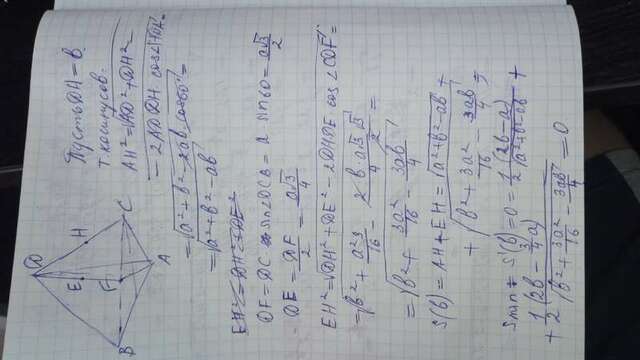 Пусть DH = b.
Т. косинусов.
AH² = √AD² + DH²
- 2AD·DH cos∠ADH =
= √a² + b² - 2ab cos60° =
= √a² + b² - ab
EH² = DH² + DE²
DF = DC sin∠DCB = a sin60 = a√3/2
DE = DF/2 = a√3/4
EH² = √DH² + DE² - 2DH·DE cos∠CDF =
= √b² + a²3/16 - 2·b·a√3/4 √3/2 =
= √b² + 3a²/16 - 3ab/4
S(b) = AH + EH = √a² + b² - ab +
+ √b² + 3a²/16 - 3ab/4
Smin S'(b) = 0 = 1/2 (2b - a)/√a² + b² - ab +
+ 1/2 (2b - 3/4 a)/√b² + 3a²/16 - 3ab/4 = 0
D
H
E
C
F
A
B